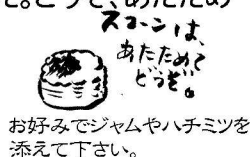 と。どうぞ、あたため
スコーンは、
あたためて
どうぞ。
お好みでジャムやハチミツを
添えて下さい。